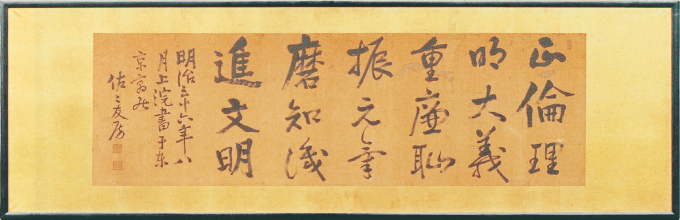 正倫理
明大義
重廉耻
振元氣
磨知識
進文明
明治三十六年八
月上浣書于東
京寓居
佐々友房